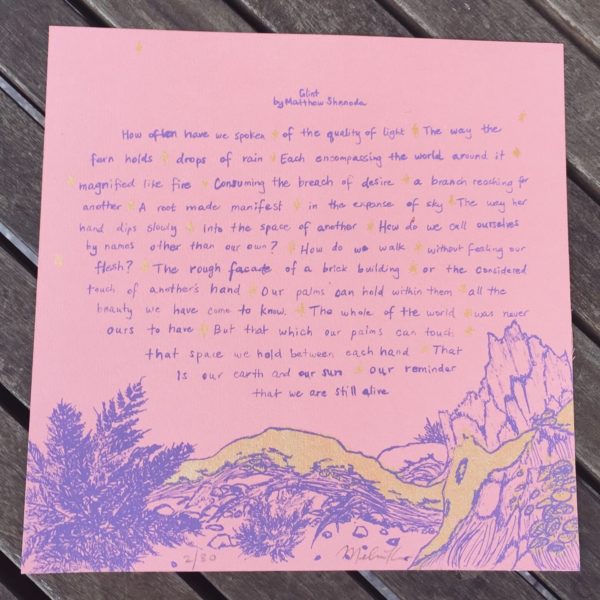 Glint
by Matthew Shenoda
How often have we spoken of the quality of light The way the
fern holds drops of rain Each encompassing the world around it
magnified like fire Consuming the breach of desire a branch reaching for
another A root made manifest in the expanse of sky The way her
hand dips slowly Into the space of another How do we call ourselves
by names other than our own? How do we walk without feeling our
flesh? The rough facade of a brick building or the considered
touch of another's hand Our palms can hold within them all the
beauty we have come to know. The whole of the world was never
ours to have But that which our palms can touch
that space we hold between each hand That
Is our earth and our sum our reminder
that we are still alive
2/30